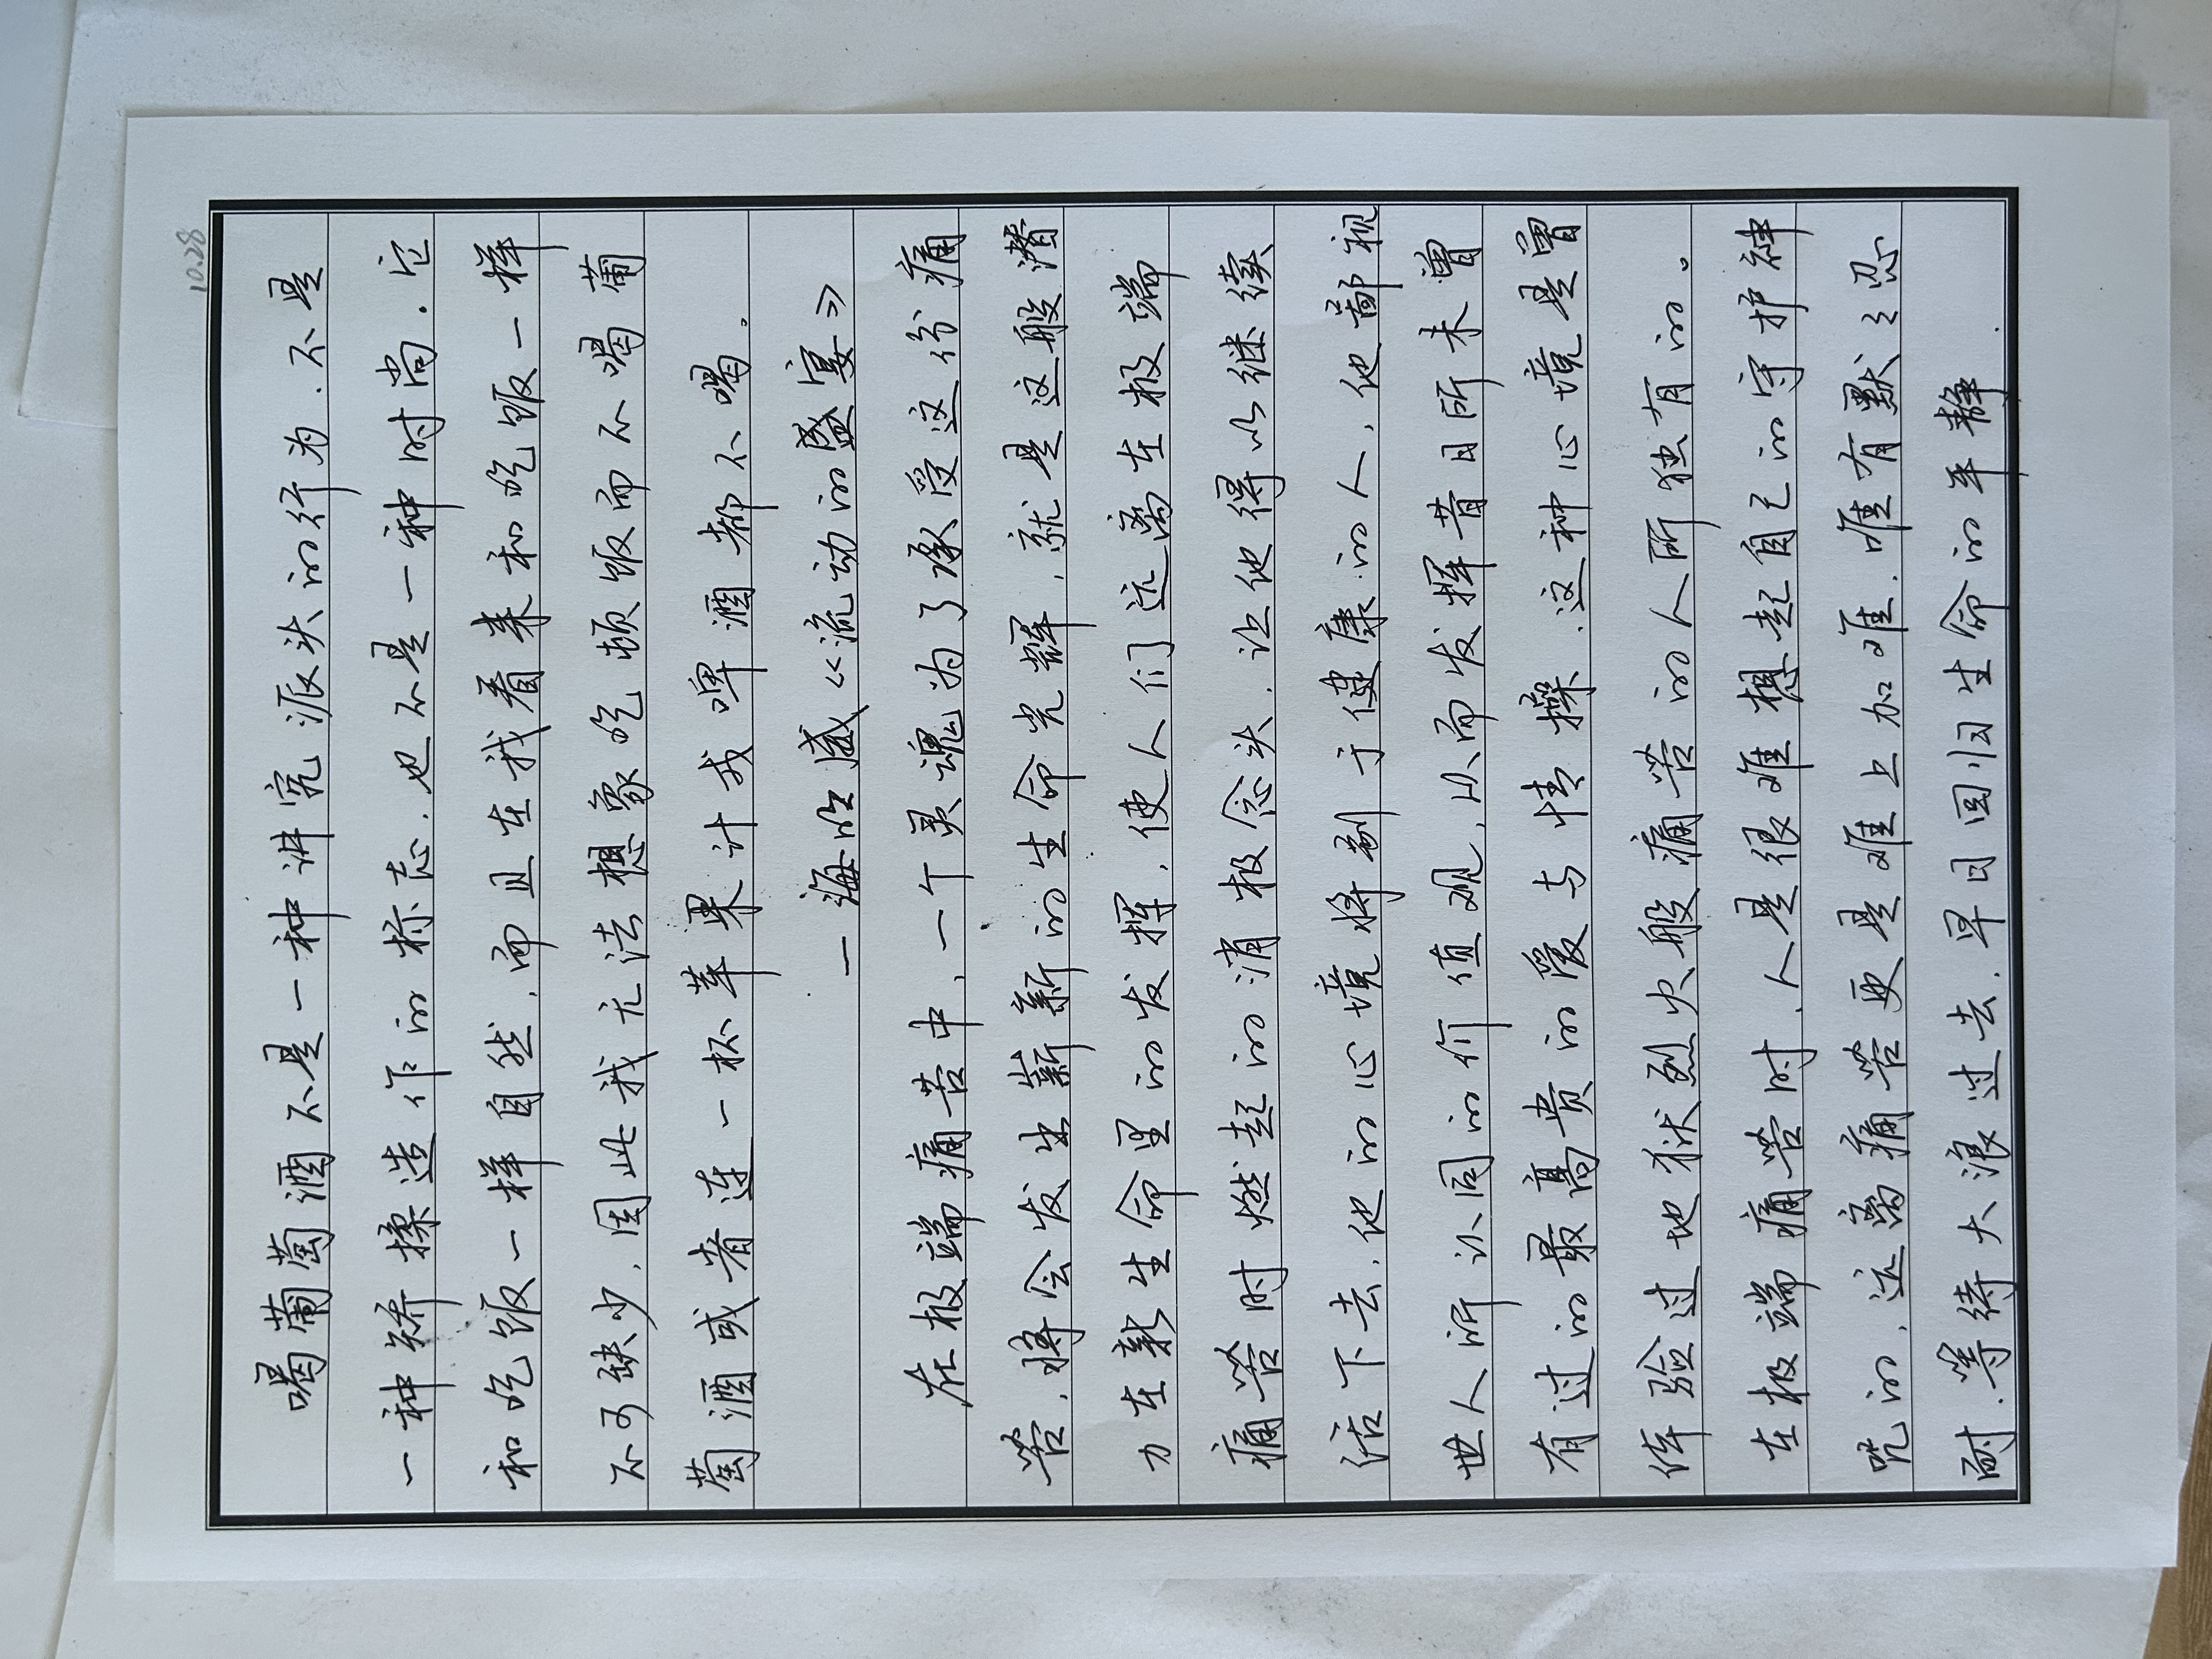 10.28
喝葡萄酒不是一种讲究派头的行为.不是
一种矫揉造作的标志.也不是一种时尚.它
和吃饭一样自然,而且在我看来和吃饭一样
不可缺少,因此我无法想象吃顿饭而不喝葡
萄酒或者连一杯苹果汁或啤酒都不喝。
—海明威《流动的盛宴》
在极端痛苦中,一个灵魂为了承受这份痛
苦,将会发出崭新的生命光辉,就是这般潜
力在新生命里的发挥,使人们远离在极端
痛苦时燃起的消极念头.让他得以继续
活下去.他的心境将别于健康的人,他鄙视
世人所认同的价值观,从而发挥昔日所未曾
有过的最高贵的爱与情操.这种心境是曾
体验过地狱烈火般痛苦的人所独有的。
在极端痛苦时.人是很难想起自己的守护神
咒的,远离痛苦更是难上加难.唯有默々忍
耐.等待大浪过去.早日回归生命的平静.